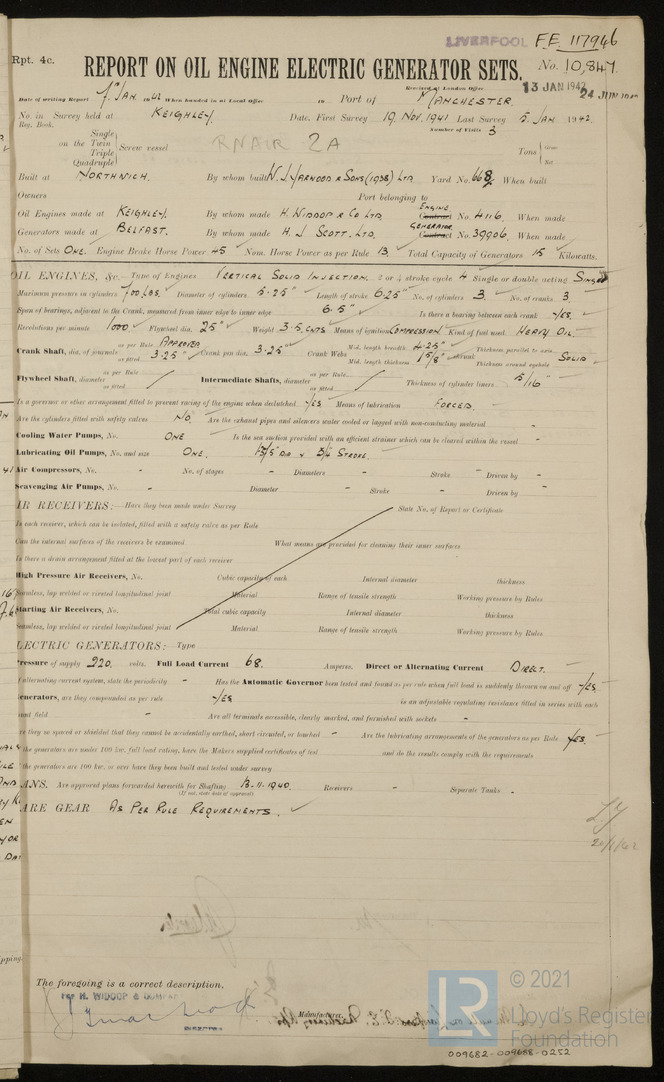 LIVERPOOL F.E. 117946
Rpt. 4c.
REPORT ON OIL ENGINE ELECTRIC GENERATOR SETS.
No. 10,847.
Received at London Office 13 JAN 1942
Date of writing Report 7th JAN 1942 When handed in at Local Office Port of MANCHESTER.
No. in Survey held at KEIGHLEY Date, First Survey 19 NOV. 1941 Last Survey 5 JAN. 1942.
Reg. Book. Number of Visits 3
Single
on the Twin
Triple
Quadruple
Screw vessel
RNAIR 2A
Tons Gross Net
Built at NORTHWICH. By whom built W. J. YARWOOD & SONS (1938) LTD. Yard No. 668. When built
Owners Port belonging to
Oil Engines made at KEIGHLEY. By whom made H. WIDDOP & CO LTD. ENGINE Contract No. 4116. When made
Generators made at BELFAST. By whom made H. J. SCOTT, LTD. GENERATOR Contract No. 39906. When made
No. of Sets ONE. Engine Brake Horse Power 45 Nom. Horse Power as per Rule 13. Total Capacity of Generators 15 Kilowatts.
OIL ENGINES, &c.—Type of Engines VERTICAL SOLID INJECTION. 2 or 4 stroke cycle 4 Single or double acting SINGLE
Maximum pressure in cylinders 700 LBS. Diameter of cylinders 5.25" Length of stroke 6.25" No. of cylinders 3. No. of cranks 3.
Span of bearings, adjacent to the Crank, measured from inner edge to inner edge 6.5" Is there a bearing between each crank YES.
Revolutions per minute 1000 Flywheel dia. 25" Weight 3.5 CWTS Means of ignition COMPRESSION Kind of fuel used HEAVY OIL.
Crank Shaft, dia. of journals as per Rule APPROVED as fitted 3.25" Crank pin dia. 3.25" Crank Webs Mid. length breadth 4.25" Mid. length thickness 1 5/8" shrunk Thickness parallel to axis Thickness around eyehole SOLID
Flywheel Shaft, diameter as per Rule as fitted Intermediate Shafts, diameter as per Rule as fitted Thickness of cylinder liners 5/16"
Is a governor or other arrangement fitted to prevent racing of the engine when declutched YES. Means of lubrication FORCED.
Are the cylinders fitted with safety valves NO. Are the exhaust pipes and silencers water cooled or lagged with non-conducting material -
Cooling Water Pumps, No. ONE Is the sea suction provided with an efficient strainer which can be cleared within the vessel -
Lubricating Oil Pumps, No. and size ONE. DIA x 3/4 STROKE.
Air Compressors, No. - No. of stages - Diameters - Stroke - Driven by -
Scavenging Air Pumps, No. - Diameter - Stroke - Driven by -
AIR RECEIVERS:—Have they been made under Survey State No. of Report or Certificate
Is each receiver, which can be isolated, fitted with a safety valve as per Rule
Can the internal surfaces of the receivers be examined What means are provided for cleaning their inner surfaces
Is there a drain arrangement fitted at the lowest part of each receiver
High Pressure Air Receivers, No. Cubic capacity of each Internal diameter thickness
Seamless, lap welded or riveted longitudinal joint Material Range of tensile strength Working pressure by Rules
Starting Air Receivers, No. Total cubic capacity Internal diameter thickness
Seamless, lap welded or riveted longitudinal joint Material Range of tensile strength Working pressure by Rules
ELECTRIC GENERATORS:—Type
Pressure of supply 220. volts. Full Load Current 68. Amperes. Direct or Alternating Current DIRECT.
If alternating current, state the periodicity - Has the Automatic Governor been tested and found as per rule when full load is suddenly thrown on and off YES.
Generators, are they compounded as per rule YES is an adjustable regulating resistance fitted in series with each
shunt field - Are all terminals accessible, clearly marked, and furnished with sockets -
are they so spaced or shielded that they cannot be accidentally earthed, short circuited, or touched - Are the lubricating arrangements of the generators as per Rule YES.
If the generators are under 100 kw. full load rating, have the Makers supplied certificates of test and do the results comply with the requirements
If the generators are 100 kw. or over have they been built and tested under survey
PLANS. Are approved plans forwarded herewith for Shafting 13.11.1940. Receivers - Separate Tanks -
(If not, state date of approval)
SPARE GEAR AS PER RULE REQUIREMENTS.
20/1/42
The foregoing is a correct description,
FOR H. WIDDOP & COMPANY
DIRECTOR
Manufacturer.
LR
© 2021
Lloyd's Register
Foundation
009682-009688-0252